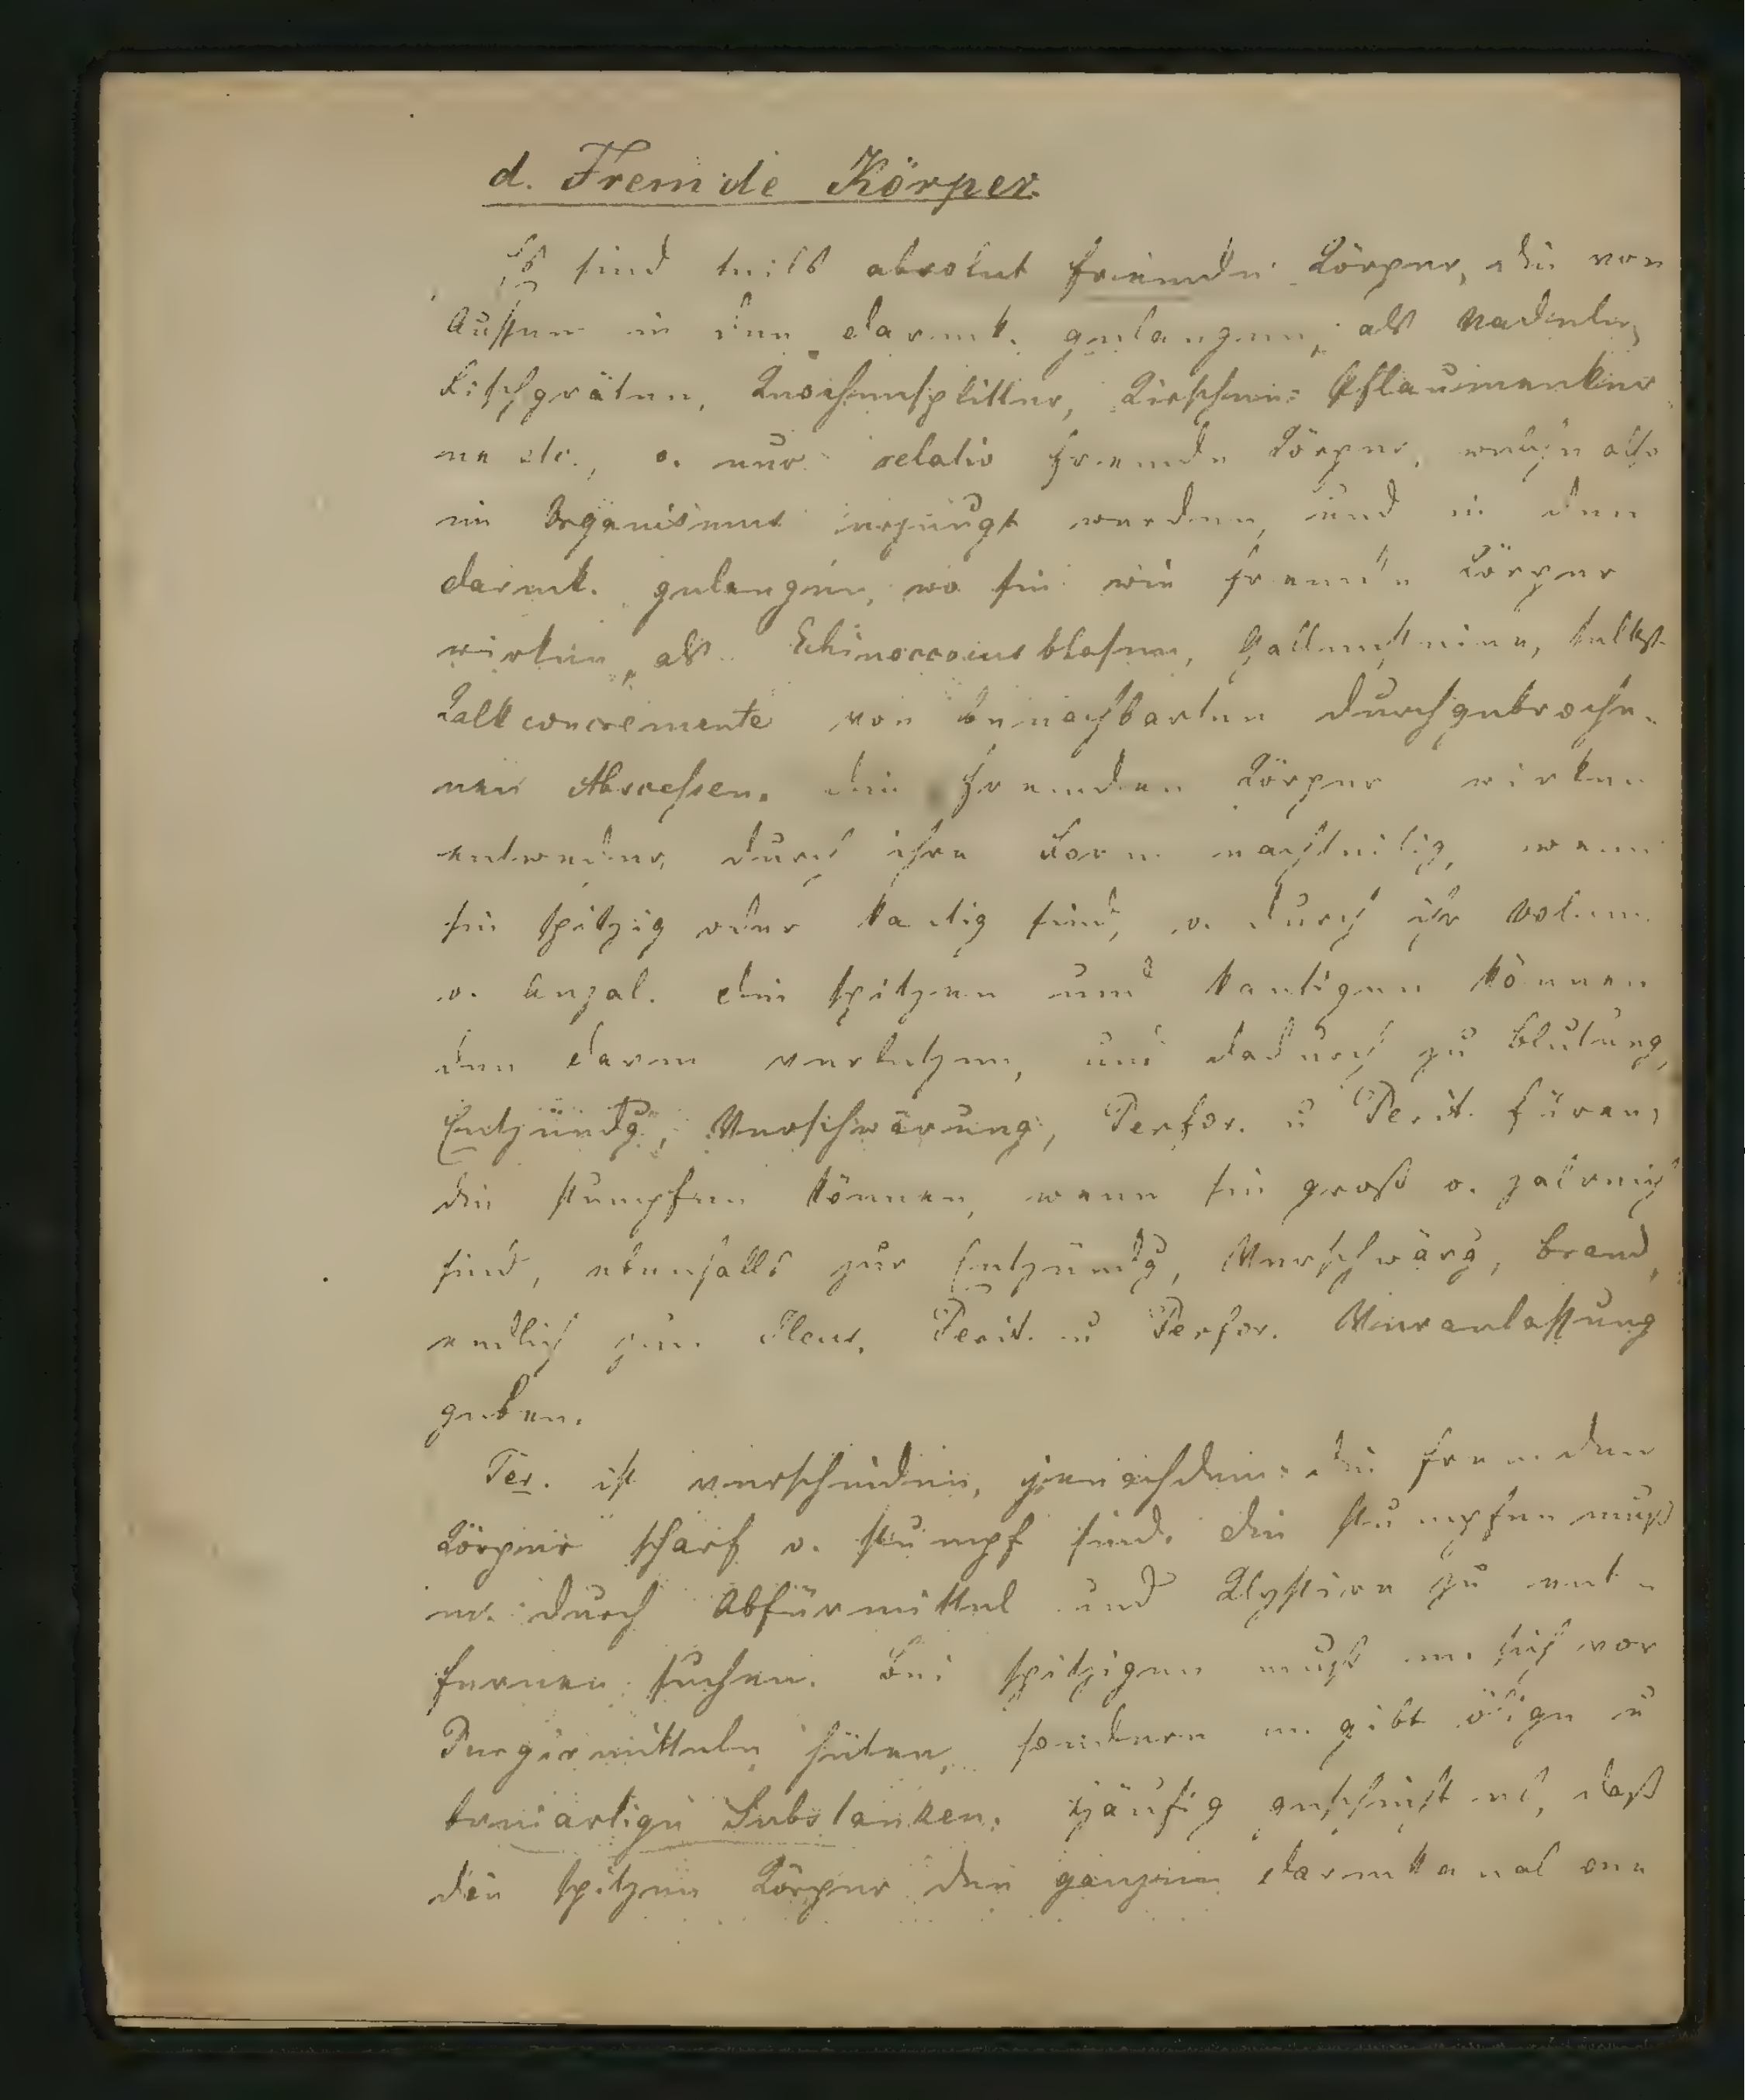 d. Fremde Körper.
Es sind teils absolut fremde Körper, die von
Aussen in den darmk. gelangen, als Nadeln,
Fischgräten, Knochensplitter, Kirschen= Pflaumenker
ne etc., o. nur relativ fremde Körper, welche also
im Organismus erzeugt werden, und in den
darmk. gelangen, wo sie wie fremde Körper
wirken, als Echinococcusblasen, Gallensteine, selbst
Kalkconcremente von benachbarten durchgebroche=
nen Abscessen. die fremden Körper wirken
entweder, durch ihre Form nachteilig, wenn
sie spitzig oder kantig sind, o. durch ihr Volum
o. Anzal. die spitzen und kantigen können
den darm verletzen, und dadurch zu Blutung,
Entzündg, Verschwärung, Perfor. u Perit. füren,
die stumpfen können, wenn sie groß o. zalreich
sind, ebenfalls zur Entzündg, Verschwärg, Brand,
endlich zum Ileus, Perit. u Perfor. Veranlassung
geben.
Ter. ist verschieden, jenachdem die fremden
Körper scharf o. stumpf sind. die stumpfen muß
m. durch Abfürmittel und Klystire zu ent=
fernen suchen. Bei spitzigen muß m. sich vor
Purgirmitteln hüten, sondern m. gibt ölige u
breiartige Substanzen. Häufig geschieht es, daß
die spitzen Körper den ganzen darmkanal one